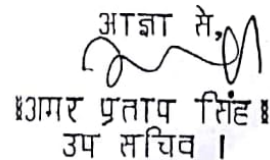 आज्ञा से,
॥अमर प्रताप सिंह॥
उप सचिव ।